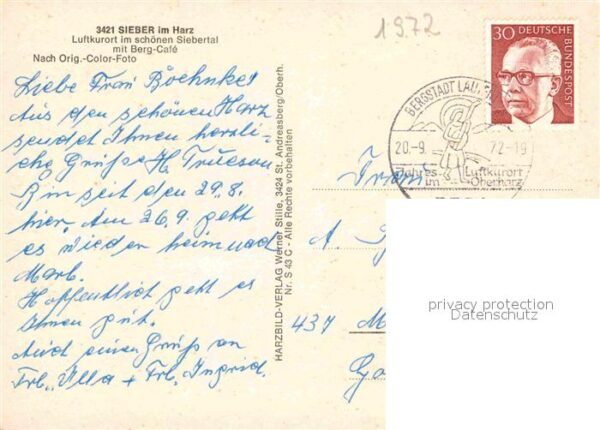 1972
3421 SIEBER im Harz
Luftkurort im schönen Siebertal
mit Berg-Café
Nach Orig.-Color-Foto
Liebe Frau Boehnke!
Aus den schönen Harz
sendet Ihnen herzli-
che Grüße H.
Bin seit den 29.8.
hier. Am 26.9. geht
es wieder heim nach
Marb.
Hoffentlich geht es
Ihnen gut.
Auch einen Gruß an
Frl. Ulla + Frl. Ingrid.
HARZBILD-VERLAG Werner Stille, 3424 St. Andreasberg/Oberh.
Nr. S 43 C - Alle Rechte vorbehalten
30 DEUTSCHE BUNDESPOST
BERGSTADT
20.-9. 72-19
Jahres Luftkurort
im Oberharz
A.
437 M
privacy protection
Datenschutz